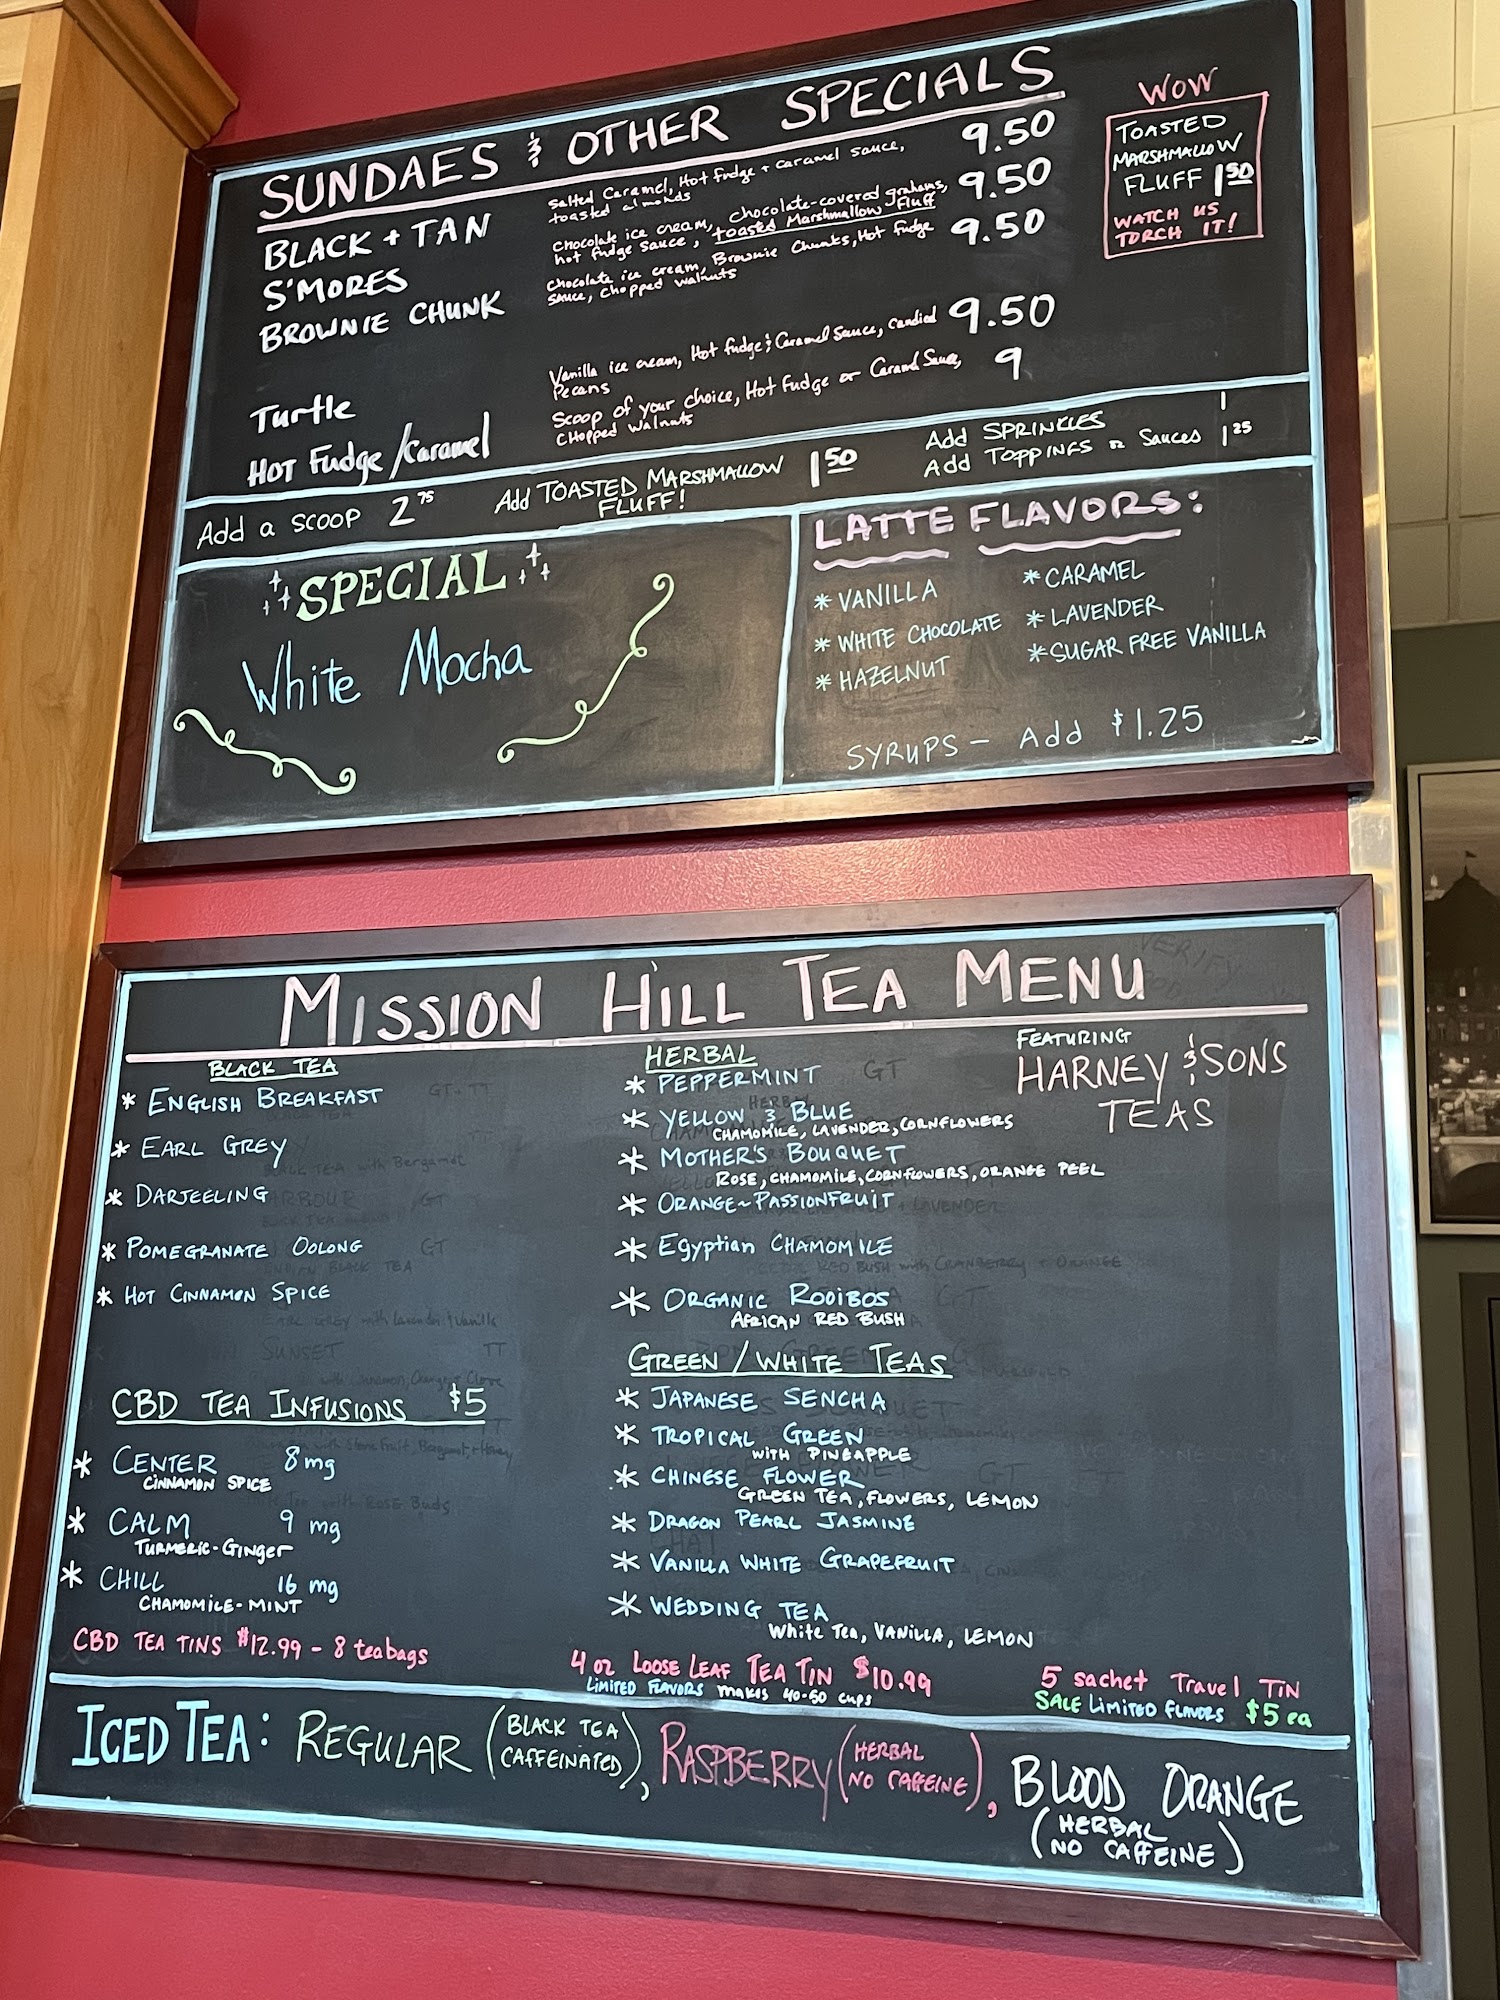 SUNDAES & OTHER SPECIALS
BLACK + TAN
Salted Caramel, Hot Fudge + Caramel sauce,
toasted almonds
9.50
S'MORES
Chocolate ice cream, chocolate-covered grahams,
hot fudge sauce, toasted Marshmallow Fluff
9.50
BROWNIE CHUNK
Chocolate ice cream, Brownie Chunks, Hot fudge
sauce, chopped walnuts
9.50
Turtle
Vanilla ice cream, Hot fudge & Caramel Sauce, candied
Pecans
9.50
HOT Fudge/Caramel
Scoop of your choice, Hot Fudge or Caramel Sauce,
CHopped walnuts
9
WOW
TOASTED
MARSHMALLOW
FLUFF 1.50
WATCH US
TORCH IT!
Add a SCOOP 2.75
Add TOASTED MARSHMALLOW
FLUFF!
1.50
Add SPRINKLES 1
Add TOPPINGS or Sauces 1.25
SPECIAL
White Mocha
LATTE FLAVORS:
* VANILLA
* WHITE CHOCOLATE
* HAZELNUT
* CARAMEL
* LAVENDER
* SUGAR FREE VANILLA
SYRUPS - Add $1.25
MISSION HILL TEA MENU
BLACK TEA
* ENGLISH BREAKFAST
* EARL GREY
* DARJEELING
* POMEGRANATE OOLONG
* HOT CINNAMON SPICE
CBD TEA INFUSIONS $5
* CENTER 8mg
CINNAMON SPICE
* CALM 9 mg
TURMERIC-GINGER
* CHILL 16 mg
CHAMOMILE-MINT
CBD TEA TINS $12.99 - 8 teabags
HERBAL
* PEPPERMINT
* YELLOW & BLUE
CHAMOMILE, LAVENDER, CORNFLOWERS
* MOTHER'S BOUQUET
ROSE, CHAMOMILE, CORNFLOWERS, ORANGE PEEL
* ORANGE-PASSIONFRUIT
* Egyptian CHAMOMILE
* ORGANIC ROOIBOS
AFRICAN RED BUSH
GREEN/WHITE TEAS
* JAPANESE SENCHA
* TROPICAL GREEN
WITH PINEAPPLE
* CHINESE FLOWER
GREEN TEA, FLOWERS, LEMON
* DRAGON PEARL JASMINE
* VANILLA WHITE GRAPEFRUIT
* WEDDING TEA
White Tea, VANILLA, LEMON
FEATURING
HARNEY & SONS
TEAS
4 oz LOOSE LEAF TEA TIN $10.99
LIMITED FLAVORS makes 40-50 cups
5 sachet Travel TIN
SALE LIMITED FLAVORS $5 ea
ICED TEA: REGULAR (BLACK TEA
CAFFEINATED),
RASPBERRY (HERBAL
NO CAFFEINE),
BLOOD ORANGE
(HERBAL
NO CAFFEINE)